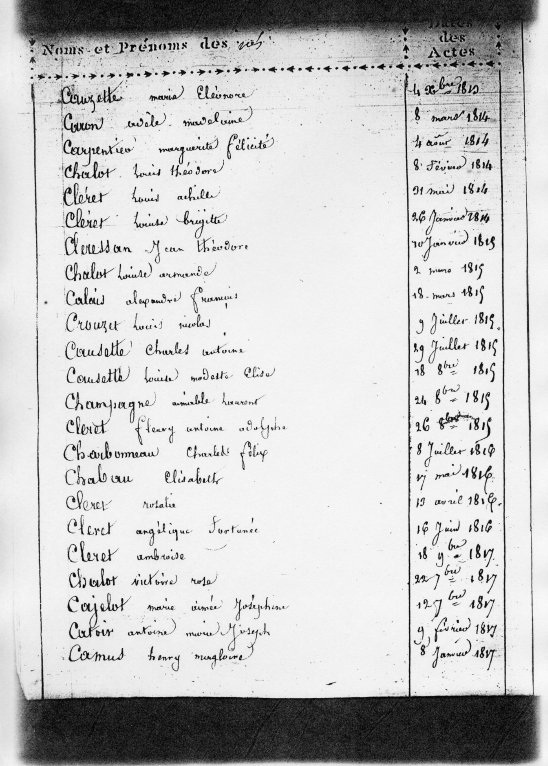 Noms et Prénoms des Dates des Actes
Couzette maria Eléonore 4 Xbre 1813
Caron adèle madelaine 8 mars 1814
Carpentier marguerite félicité 4 août 1814
Chalot Louis théodore 8 Février 1814
Cléret Louis achille 31 mai 1814
Cléret Louise brigitte 26 Janvier 1814
Cleressan Jean théodore 10 Janvier 1815
Chalot Louise armande 2 mars 1815
Calais alexandre François 18 mars 1815
Crouzet Louis nicolas 9 Juillet 1815
Causette Charles antoine 29 Juillet 1815
Causette Louise modeste Elise 18 8bre 1815
Champagne aimable Laurent 24 8bre 1815
Cleret fleury antoine adolphe 26 8bre 1815
Charbonneau Charles félix 8 Juillet 1816
Elisabeth 17 mai 1816
Cleret rosalie 13 avril 1816
Cleret angélique Fortunée 16 Juin 1816
Cleret ambroise 18 9bre 1817
Chalot victoire rose 22 7bre 1817
Cajelot marie aimée Joséphine 12 7bre 1817
Catoir antoine marie Joseph 9 février 1817
Camus henry 8 Janvier 1817